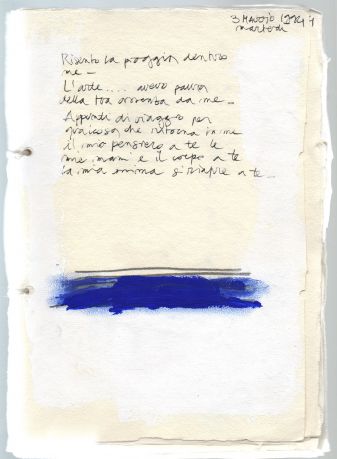 3 MAGGIO 1994
martedì
Risento la pioggia dentro
me –
.... avevo paura
della tua assenza da me –
Appunti di viaggio per
qualcosa che ritorna in me
il mio pensiero a te le
mie mani e il corpo a te
la mia anima si riapre a te –